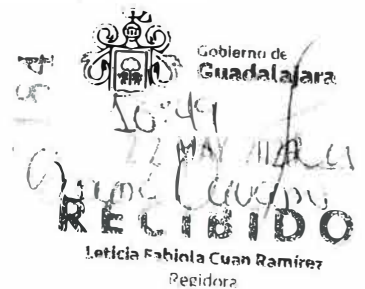 Gobierno de
Guadalajara
10:49
22 MAY
RECIBIDO
Leticia Fabiola Cuan Ramírez
Regidora